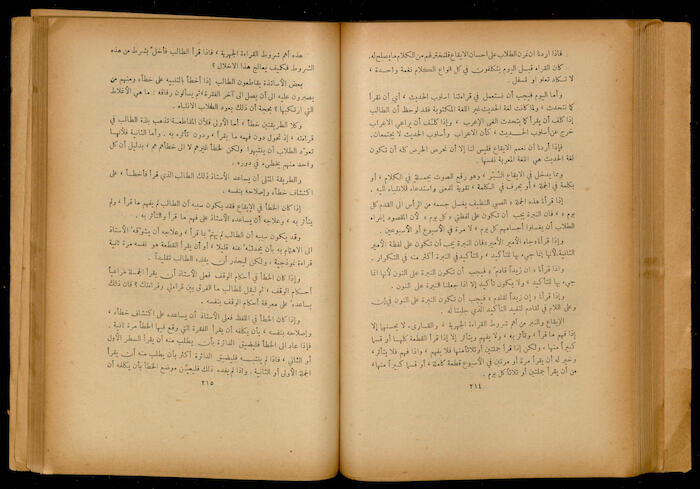 فاذا اردنا ان نمرن الطلاب على احسان الايقاع فلنختر لهم من الكلام ما يصلح له.
كان القراء قبيل اليوم يتكلفون في كل انواع الكلام نغمة واحدة ،
لا تكاد تعلو او تسفل .
وأما اليوم فيجب أن نستعمل في قراءتنا اسلوب الحديث ، أي أن نقرأ
كما نتحدث ، ولما كانت لغة الحديث غير اللغة المكتوبة فقد لوحظ أن الطالب
إذا كلف أن يقرأ كما يتحدث ألغى الإعراب ، وإذا كلف أن يراعي الاعراب
خرج عن أسلوب الحديث ، كأن الاعراب وأسلوب الحديث لا يجتمعان.
فإذا أردنا أن نعم الايقاع فليس لنا إلا أن نحرص الحرص كله أن تكون
لغة الحديث هي اللغة المعربة نفسها .
ومما يدخل في الايقاع النبر ، وهو رفع الصوت بجملة في الكلام ، أو
بكلمة في الجملة ، أو بحرف في الكلمة ، تقوية لمعنى واستدعاء للانتباه اليه .
إذا قرأنا هذه الجملة « الصبي النظيف يغسل جسمه من الرأس الى القدم كل
يوم » ، فان النبرة يجب أن تكون على لفظتي « كل يوم » ، لأن المقصود إغراء
الطلاب أن يغسلوا أجسامهم كل يوم ، لا مرة في الأسبوع أو الأسبوعين .
وإذا قرأنا « جاء الأمير الأمير » فان النبرة يجب أن تكون على لفظة الأمير
الثانية ، لأنها إنما جيء بها للتأكيد ، والتأكيد في النبرة أكثر منه في التكرار .
واذا قرأنا « ان زيداً قادم » فيجب أن تكون النبرة على النون لأنها إنما
جيء بها للتأكيد ، ولا يكون تأكيد إلا اذا جعلنا النبرة على النون .
وإذا قرأنا « إن زيداً لقادم » فيجب أن تكون النبرة على النون في إن
وعلى اللام في لقادم لتفيد التأكيد الذي جلبتا له .
الايقاع والنبر من أهم شروط القراءة الجهرية ، والقارىء لا يحسنها إلا
إذا فهم ما قرأ ، وتأثر به ، ولا يفهم ويتأثر إلا إذا قرأ القطعة كلها أو قسما
كبيراً منها ، ولكن إذا قرأ جملتين أو ثلاثاً منها فلا يفهم ، واذا فهم فلا يتأثر ،
وخير له أن يقرأ مرة أو مرتين في الأسبوع قطعة كاملة ، أو قسما كبيراً منها ،
من أن يقرأ جملتين أو ثلاثاً كل يوم .
٢١٤
هذه أهم شروط القراءة الجهرية ، فاذا قرأ الطالب فأخل بشرط من هذه
الشروط فكيف يعالج هذا الاخلال ؟
بعض الأساتذة يقاطعون الطالب إذا أخطأ بالتنبيه على خطأه ومنهم من
يصبرون عليه الى أن يصل الى آخر الفقرة ، ثم يسألون رفاقه : ما هي الأغلاط
التي ارتكبها ؟ بحجة أن ذلك يعود الطلاب الانتباه .
وكلا الطريقتين خطأ ، أما الأولى فلأن المقاطعة تذهب بلذة الطالب في
قراءته ، إذ تحول دون فهمه ما يقرأ ، ودون تأثره به . وأما الثانية فلأنها
تعود الطلاب أن ينتبهوا ولكن لخطأ غيرهم لا الى خطأهم هم ، بدليل أن كل
واحد منهم يخطىء في دوره .
والطريقة المثلى أن يساعد الأستاذ ذلك الطالب الذي قرأ فأخطأ ، على
اكتشاف خطأه وإصلاحه بنفسه .
إذا كان الخطأ في الإيقاع فقد يكون سببه أن الطالب لم يفهم ما قرأ ، ولم
يتأثر به ، وعلاجه أن يساعده الأستاذ على فهم ما قرأ والتأثر به .
وقد يكون سببه أن الطالب لم يهتم بما قرأ ، وعلاجه أن يشوقه الأستاذ
الى الاهتمام به بأن يحدثه عنه قليلا ، أو أن يقرأ القطعة هو نفسه مرة ثانية
قراءة نموذجية ، ولكن ليحذر أن يقلده الطالب تقليداً .
وإذا كان الخطأ في أحكام الوقف فعلى الأستاذ أن يقرأ الجملة مراعياً
أحكام الوقف ، ثم ليقل للطالب ما الفرق بين قراءتي وقراءتك ؟ فان ذلك
يساعده على معرفة أحكام الوقف بنفسه .
وإذا كان الخطأ في اللفظ فعلى الأستاذ أن يساعده على اكتشاف خطأه ،
وإصلاحه بنفسه ، بأن يكلفه أن يقرأ الفقرة التي وقع فيها الخطأ مرة ثانية .
فإذا عاد الى الخطأ فليضيق الدائرة أكثر بأن يطلب منه أن يقرأ السطر الأول
أو الثاني ، فاذا لم ينتبه فليضيق الدائرة أكثر بأن يطلب منه أن يقرأ
الجملة الأولى أو الثانية . وإذا لم يفده ذلك فليعين موضع الخطأ بأن يكلفه أن
٢١٥